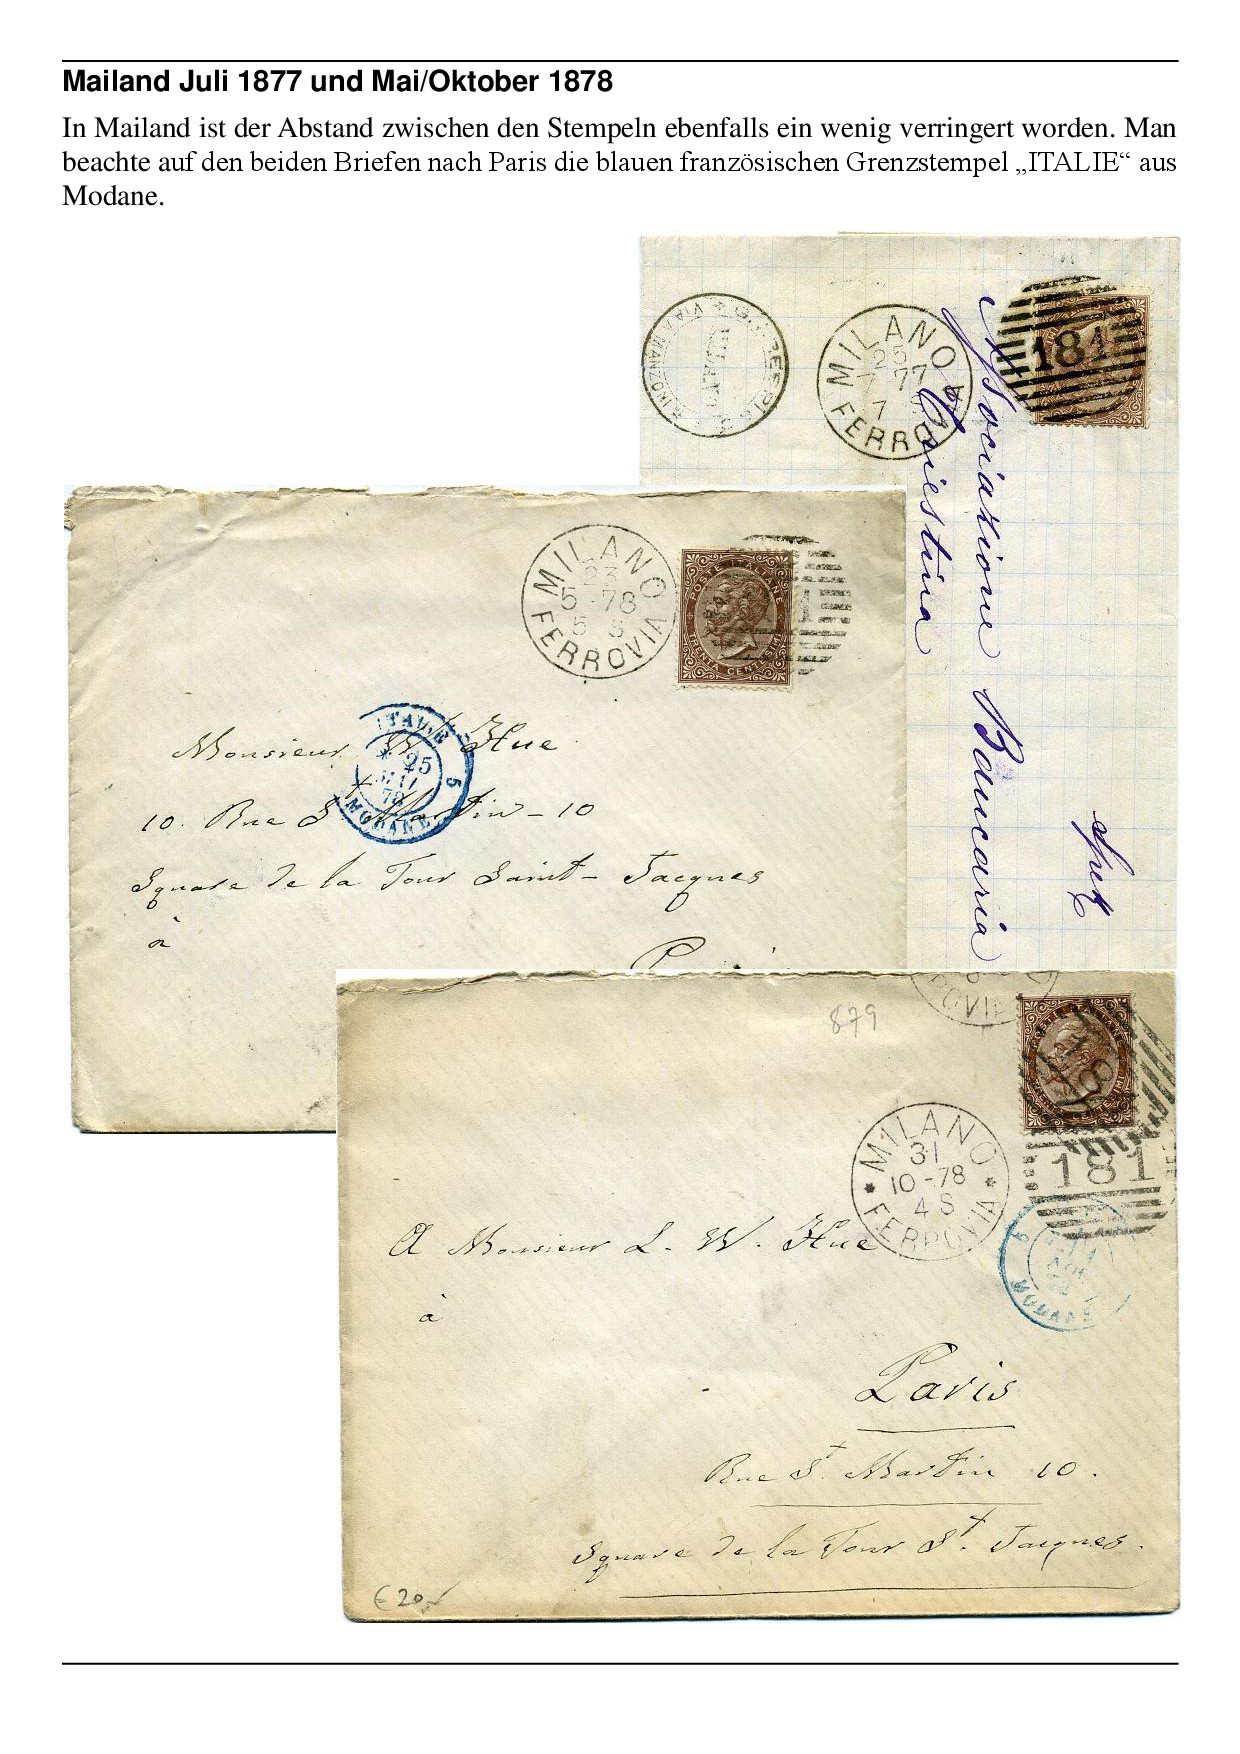 Mailand Juli 1877 und Mai/Oktober 1878
In Mailand ist der Abstand zwischen den Stempeln ebenfalls ein wenig verringert worden. Man
beachte auf den beiden Briefen nach Paris die blauen französischen Grenzstempel „ITALIE“ aus
Modane.
VIA MANZONI
MILANO
25
7 77
7 S
FERROVIA
181
Associazione Bancaria
Triestina
MILANO
23
5-78
5 S
FERROVIA
POSTE ITALIANE
TRENTA CENTESIMI
1
ITALIE
25
MAI
78
5
MODANE
Monsieur W Hue
10. Rue St Martin-10
Square de la Tour Saint-Jacques
à
879
ROVIA
181
MILANO
31
10-78
4 S
FERROVIA
181
5
MODANE
A Monsieur L. W. Hue
à
Paris
Rue St Martin 10.
Square de la Tour St. Jacques.
€ 20,-